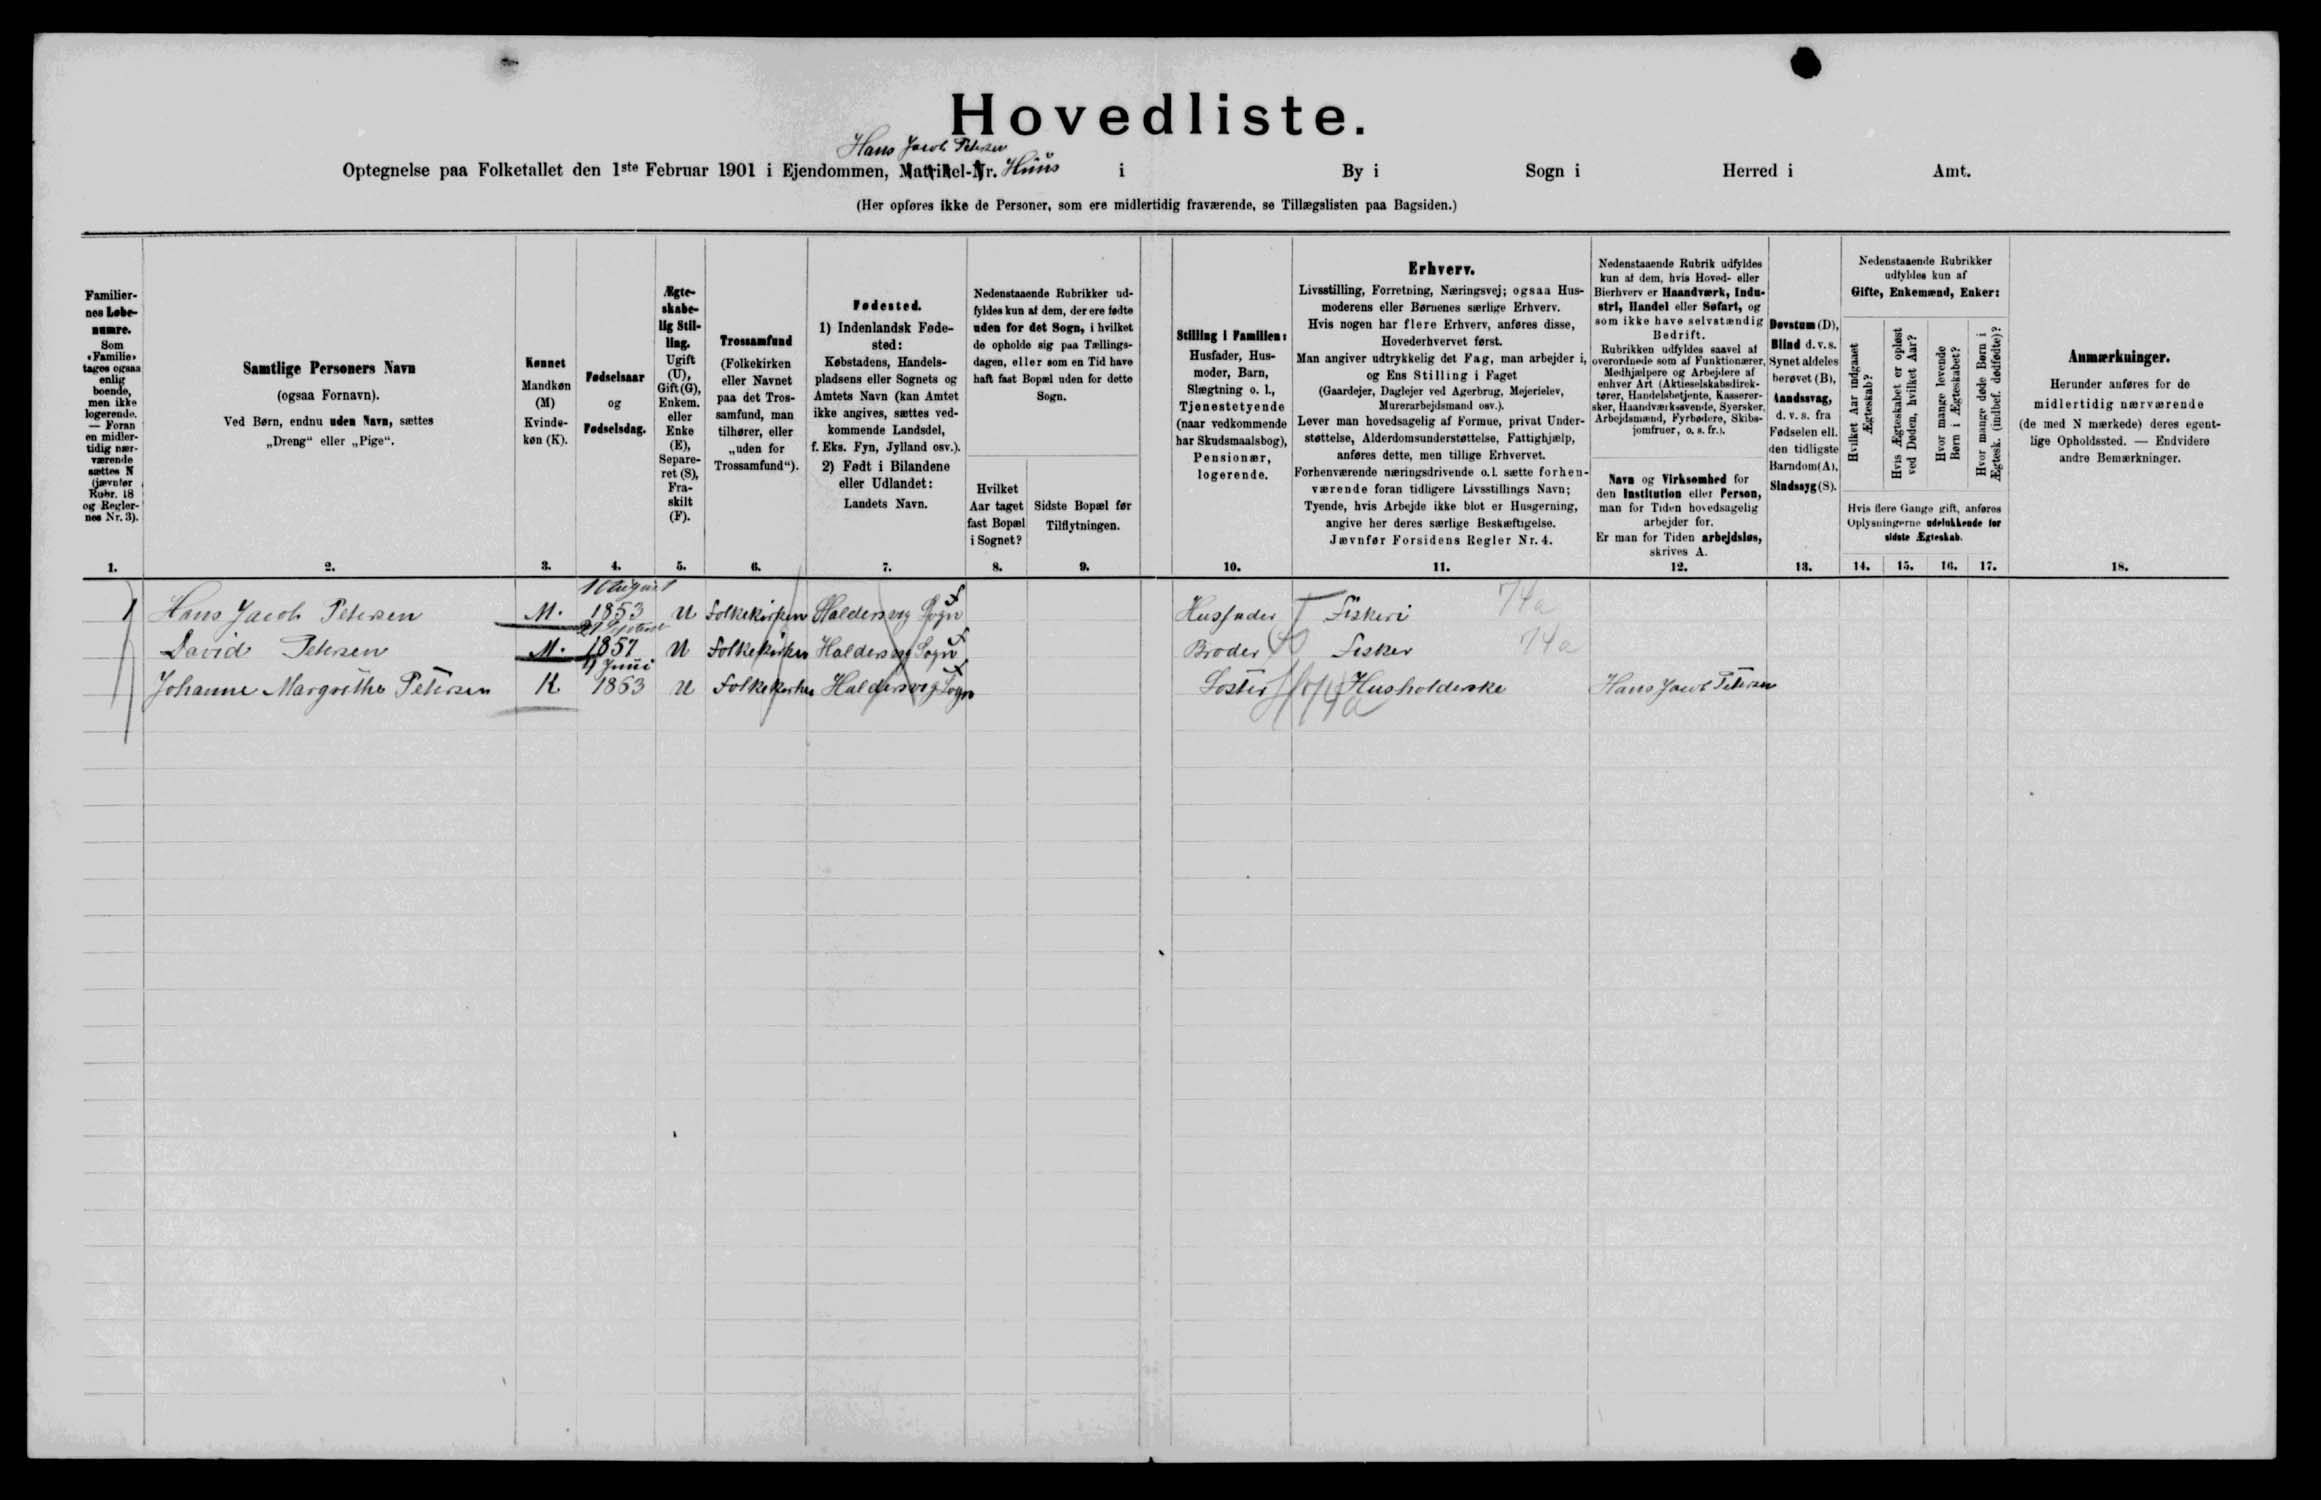 Hovedliste.
Hans Jacob Petersen
Optegnelse paa Folketallet den 1ste Februar 1901 i Ejendommen, Matrikel-Nr. Hüüs i By i Sogn i Herred i Amt.
(Her opføres ikke de Personer, som ere midlertidig fraværende, se Tillægslisten paa Bagsiden.)
Familiernes Løbenumre.
Som
«Familie»
tages ogsaa
enlig
boende,
men ikke
logerende.
— Foran
en midler-
tidig nær-
værende
sættes N
(jævnfør
Rubr. 18
og Regler-
nes Nr. 3).
1.
Samtlige Personers Navn
(ogsaa Fornavn).
Ved Børn, endnu uden Navn, sættes
„Dreng“ eller „Pige“.
2.
Kønnet
Mandkøn
(M)
Kvinde-
køn (K).
3.
Fødselsaar
og
Fødselsdag.
4.
Ægte-
skabe-
lig Stil-
ling.
Ugift
(U),
Gift (G),
Enkem.
eller
Enke
(E),
Separe-
ret (S),
Fra-
skilt
(F).
5.
Trossamfund
(Folkekirken
eller Navnet
paa det Tros-
samfund, man
tilhører, eller
„uden for
Trossamfund“).
6.
Fødested.
1) Indenlandsk Føde-
sted:
Købstadens, Handels-
pladsens eller Sognets og
Amtets Navn (kan Amtet
ikke angives, sættes ved-
kommende Landsdel,
f. Eks. Fyn, Jylland osv.).
2) Født i Bilandene
eller Udlandet:
Landets Navn.
7.
Nedenstaaende Rubrikker ud-
fyldes kun af dem, der ere fødte
uden for det Sogn, i hvilket
de opholde sig paa Tællings-
dagen, eller som en Tid have
haft fast Bopæl uden for dette
Sogn.
Hvilket
Aar taget
fast Bopæl
i Sognet?
8.
Sidste Bopæl før
Tilflytningen.
9.
Stilling i Familien:
Husfader, Hus-
moder, Barn,
Slægtning o. l.,
Tjenestetyende
(naar vedkommende
har Skudsmaalsbog),
Pensionær,
logerende.
10.
Erhverv.
Livsstilling, Forretning, Næringsvej; ogsaa Hus-
moderens eller Børnenes særlige Erhverv.
Hvis nogen har flere Erhverv, anføres disse,
Hovederhvervet først.
Man angiver udtrykkelig det Fag, man arbejder i,
og Ens Stilling i Faget
(Gaardejer, Daglejer ved Agerbrug, Mejerielev,
Murerarbejdsmand osv.).
Lever man hovedsagelig af Formue, privat Under-
støttelse, Alderdomsunderstøttelse, Fattighjælp,
anføres dette, men tillige Erhvervet.
Forhenværende næringsdrivende o. l. sætte forhen-
værende foran tidligere Livsstillings Navn;
Tyende, hvis Arbejde ikke blot er Husgerning,
angive her deres særlige Beskæftigelse.
Jævnfør Forsidens Regler Nr. 4.
11.
Nedenstaaende Rubrik udfyldes
kun af dem, hvis Hoved- eller
Bierhverv er Haandværk, Indu-
stri, Handel eller Søfart, og
som ikke have selvstændig
Bedrift.
Rubrikken udfyldes saavel af
overordnede som af Funktionærer,
Medhjælpere og Arbejdere af
enhver Art (Aktieselskabsdirek-
tører, Handelsbetjente, Kasserer-
sker, Haandværkssvende, Syersker,
Arbejdsmænd, Fyrbødere, Skibs-
jomfruer, o. s. fr.).
Navn og Virksomhed for
den Institution eller Person,
man for Tiden hovedsagelig
arbejder for.
Er man for Tiden arbejdsløs,
skrives A.
12.
Døvstum (D),
Blind d. v. s.
Synet aldeles
berøvet (B),
Aandssvag,
d. v. s. fra
Fødselen ell.
den tidligste
Barndom (A),
Sindssyg (S).
13.
Nedenstaaende Rubrikker
udfyldes kun af
Gifte, Enkemænd, Enker:
Hvilket Aar indgaaet
Ægteskab?
Hvis Ægteskabet er opløst
ved Døden, hvilket Aar?
Hvor mange levende
Børn i Ægteskabet?
Hvor mange døde Børn i
Ægtesk. (indbef. dødfødte)?
Hvis flere Gange gift, anføres
Oplysningerne udelukkende for
sidste Ægteskab.
14. 15. 16. 17.
Anmærkninger.
Herunder anføres for de
midlertidig nærværende
(de med N mærkede) deres egent-
lige Opholdssted. — Endvidere
andre Bemærkninger.
18.
1 Hans Jacob Petersen M. 1 August 1853 U Folkekirken Haldersvig Sogn Husfader Fiskeri 74a
David Petersen M. 1857 U Folkekirken Haldersvig Sogn Broder Fisker 74a
Johanne Margrethe Petersen K Juni 1863 U Folkekirken Haldersvig Sogn Søster Husholderske Hans Jacob Petersen
74a